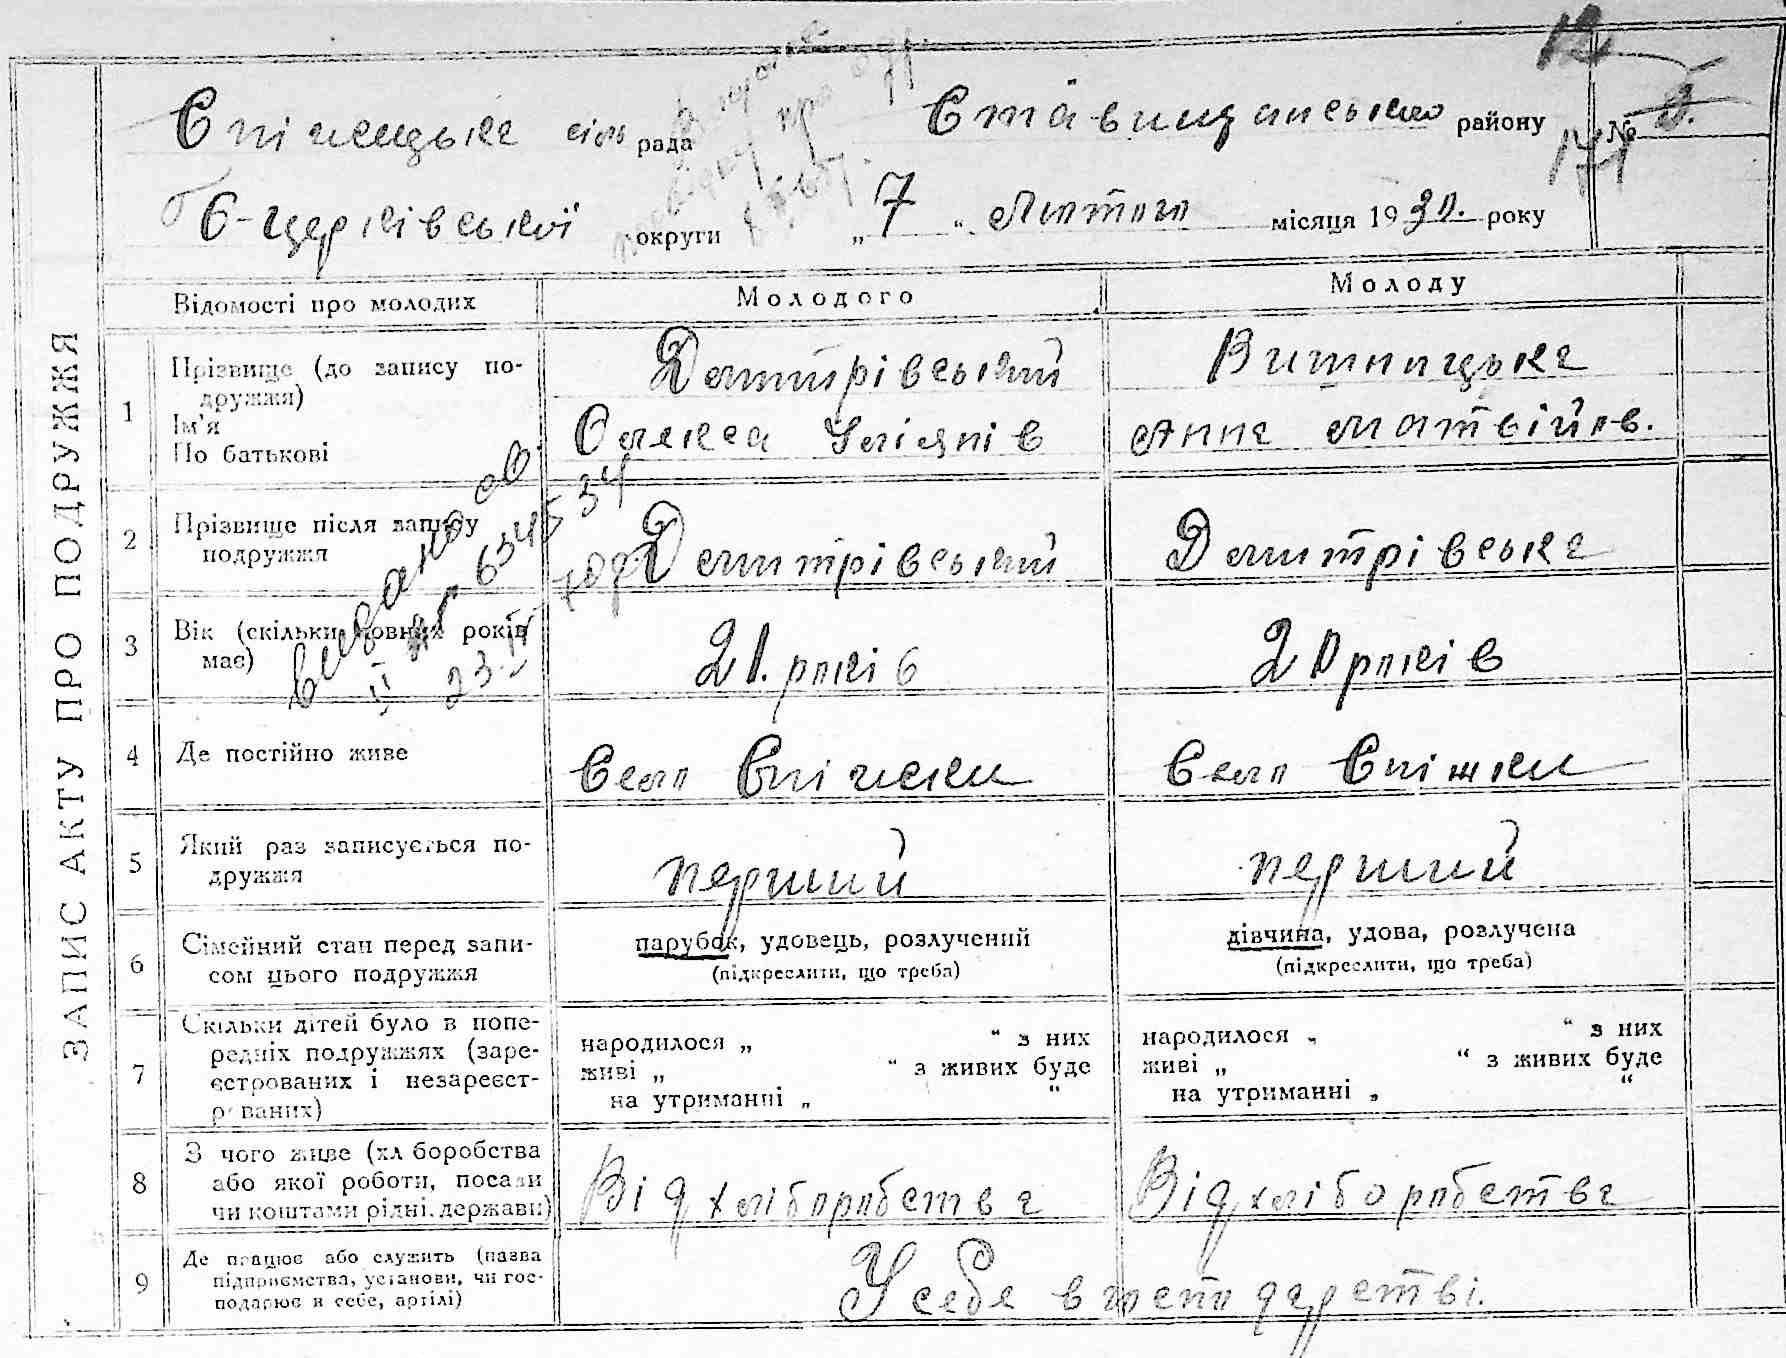 ЗАПИС АКТУ ПРО ПОДРУЖЖЯ
12
Спіжецька сіль рада Ставищанського району № 171
Б-Церківської округи „7" Лютого місяця 1930. року
Відомості про молодих Молодого Молоду
1 Прізвище (до запису подружжя) Дмитрівський Вишницька
Ім'я
По батькові Олекса Улі​янів Анна Матвійов.
2 Прізвище після запису подружжя Дмитрівський Дмитрівська
3 Вік (скільки повних років має) 21. років 20 років
4 Де постійно живе Село Спіжки Село Спіжки
5 Який раз записується подружжя перший перший
6 Сімейний стан перед записом цього подружжя парубок, удовець, розлучений дівчина, удова, розлучена
(підкреслити, що треба) (підкреслити, що треба)
7 Скільки дітей було в попередніх подружжях (зареєстрованих і незареєстрованих) народилося „ " з них народилося „ " з них
живі „ " з живих буде живі „ " з живих буде
на утриманні „ " на утриманні „ "
8 З чого живе (хліборобства або якої роботи, посади чи коштами рідні, держави) Від хліборобства Від хліборобства
9 Де працює або служить (назва підприємства, установи, чи господарює в себе, артілі) У себе в господарстві.